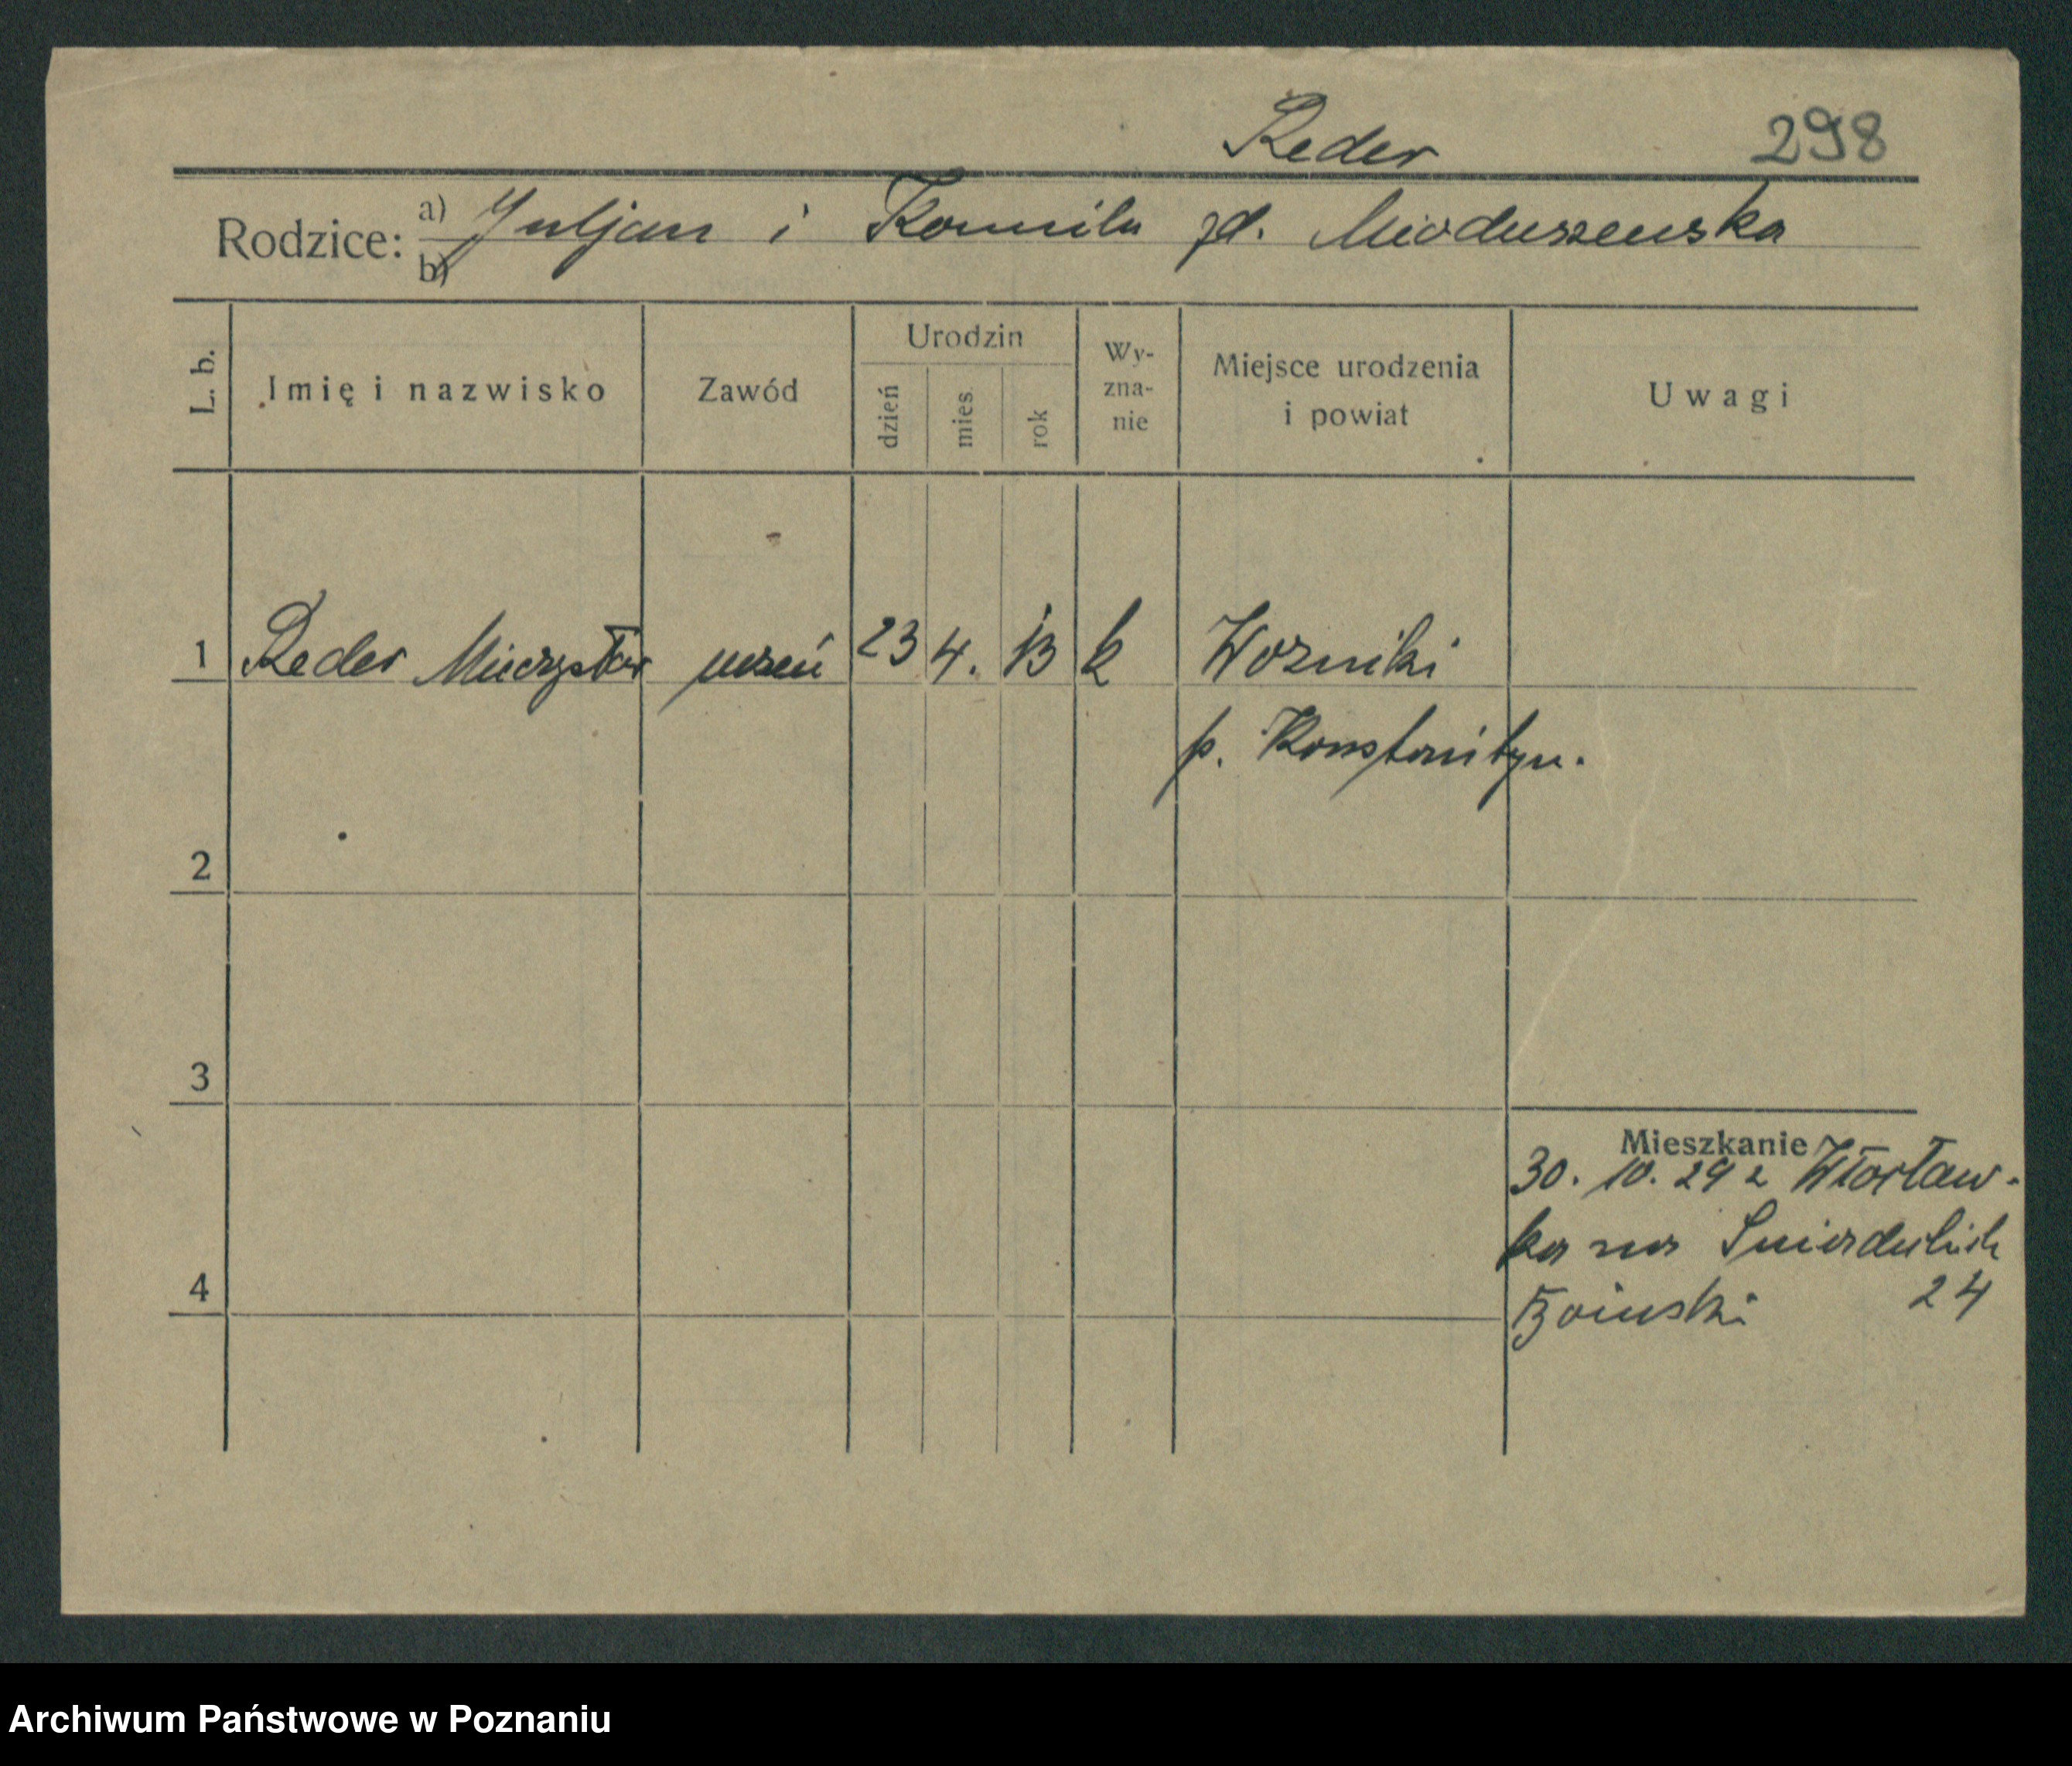 Reder 298
Rodzice: a) Juljan i Kamila zd. Mioduszewska
b)
L. b. Imię i nazwisko Zawód Urodzin dzień mies. rok Wy-zna-nie Miejsce urodzenia i powiat Uwagi
1 Reder Mieczysław uczeń 23 4. 13 k Wozniki
p. Konstantyn.
2
3
Mieszkanie
30. 10. 29 z Włocław-
ka na Śniadeckich
4 24
Archiwum Państwowe w Poznaniu